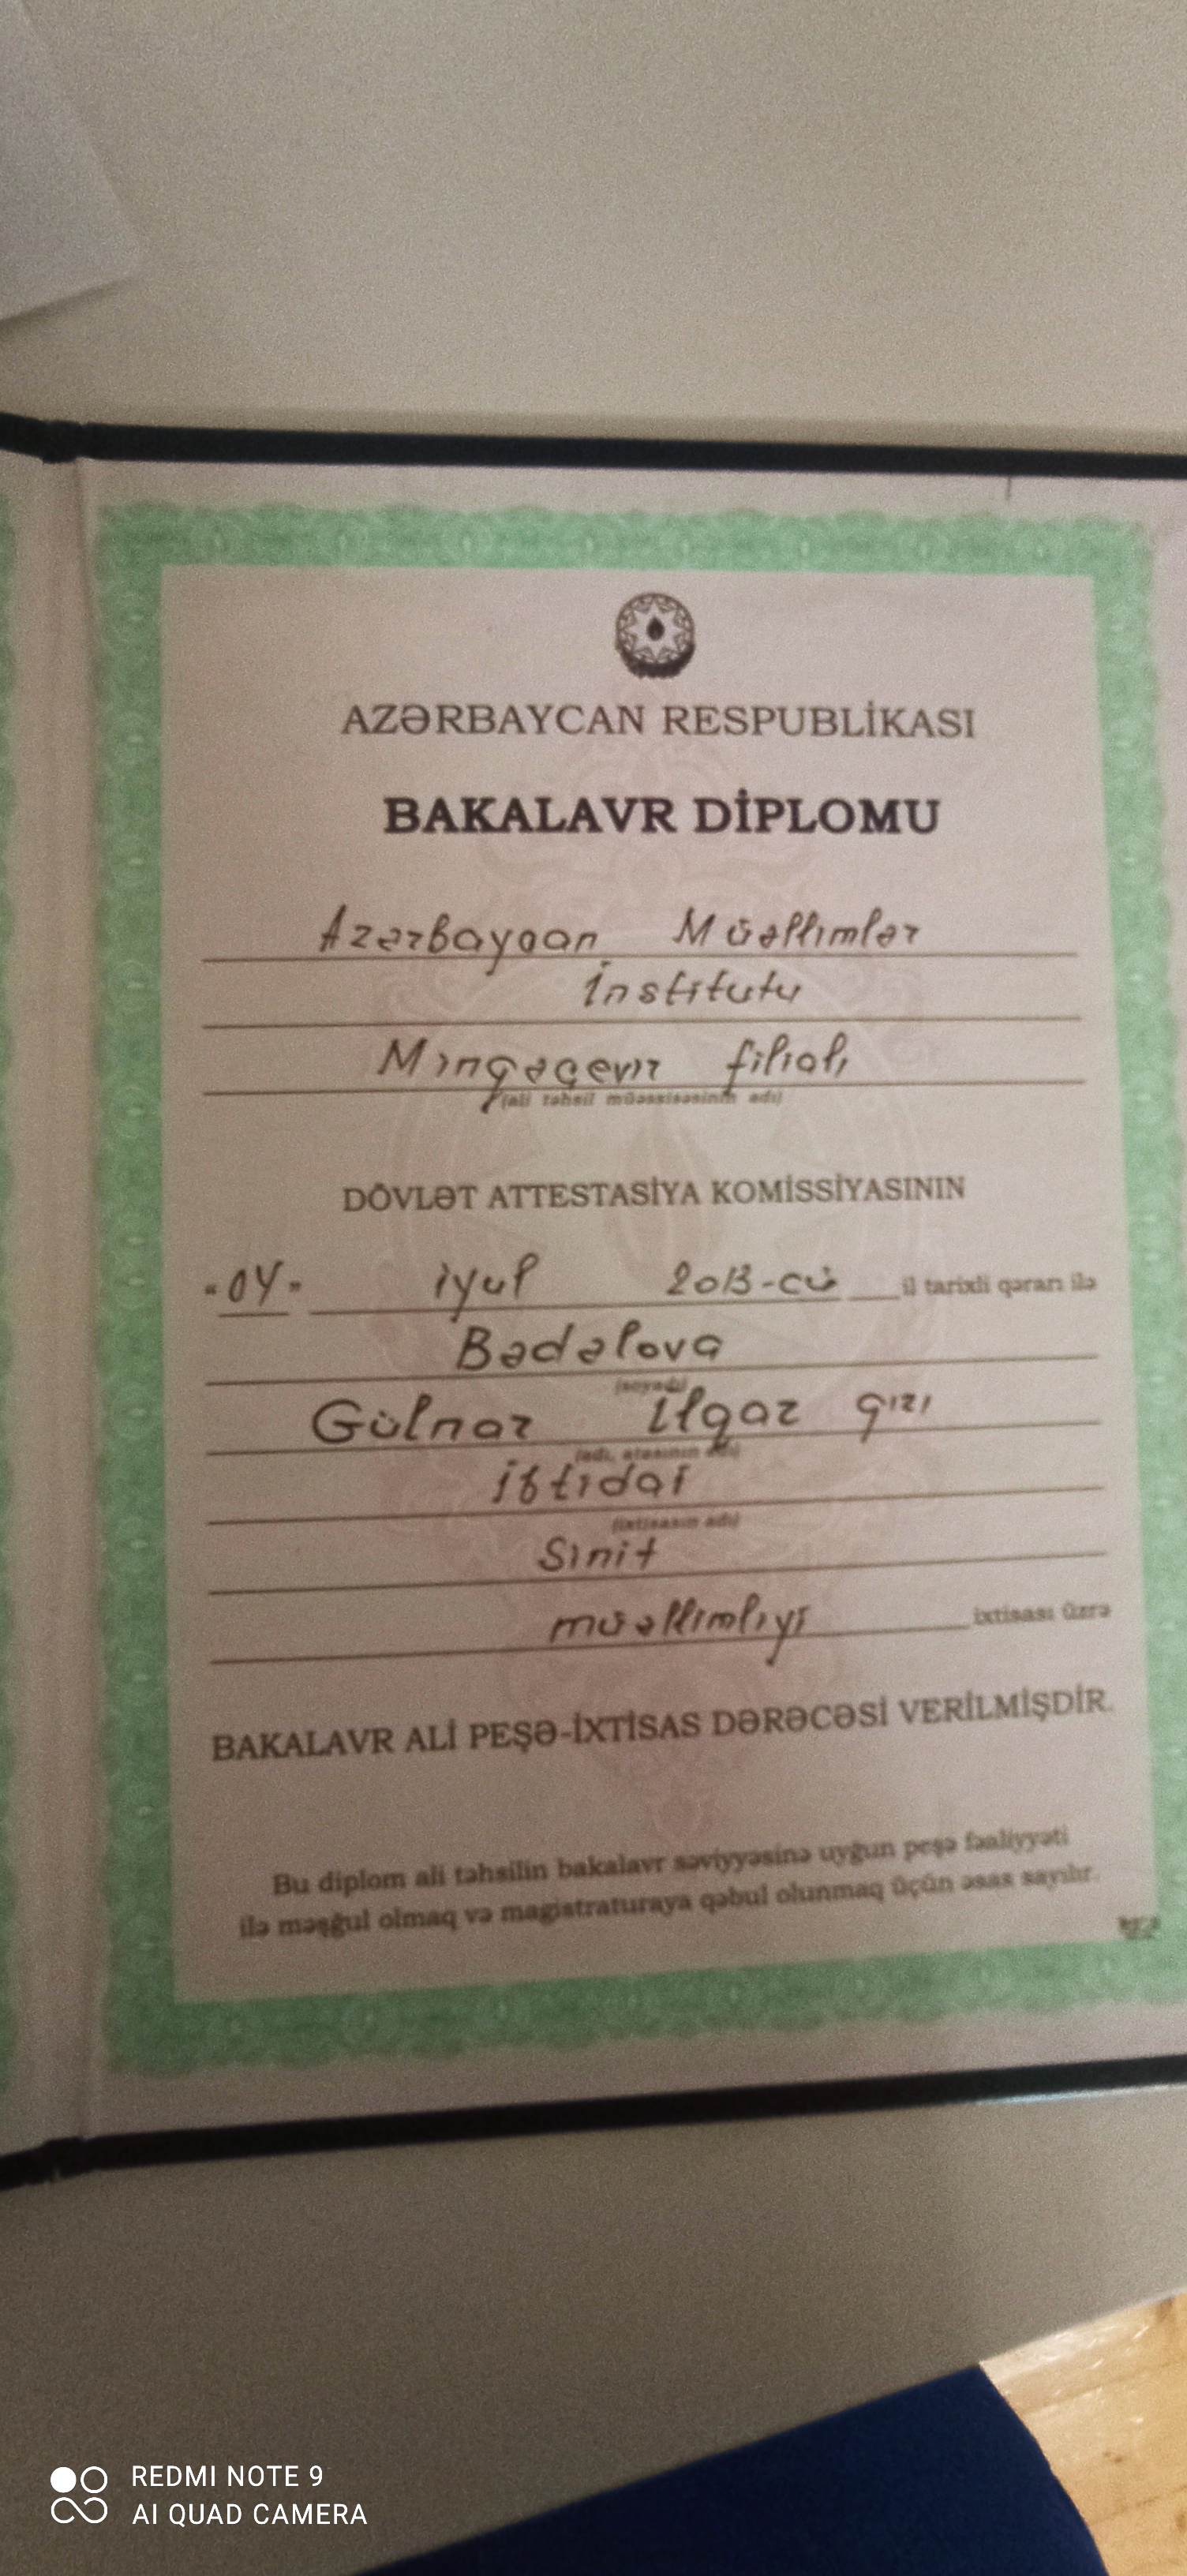 AZƏRBAYCAN RESPUBLİKASI
BAKALAVR DİPLOMU
Azərbaycan Müəllimlər
İnstitutu
Mingəçevir filialı
(ali təhsil müəssisəsinin adı)
DÖVLƏT ATTESTASİYA KOMİSSİYASININ
"04" iyul 2013-cü il tarixli qərarı ilə
Bədəlova
(soyadı)
Gülnar İlqar qızı
(adı, atasının adı)
İbtidai
(ixtisasın adı)
Sinif
müəllimliyi ixtisası üzrə
BAKALAVR ALİ PEŞƏ-İXTİSAS DƏRƏCƏSİ VERİLMİŞDİR.
Bu diplom ali təhsilin bakalavr səviyyəsinə uyğun peşə fəaliyyəti
ilə məşğul olmaq və magistraturaya qəbul olunmaq üçün əsas sayılır.
REDMI NOTE 9
AI QUAD CAMERA